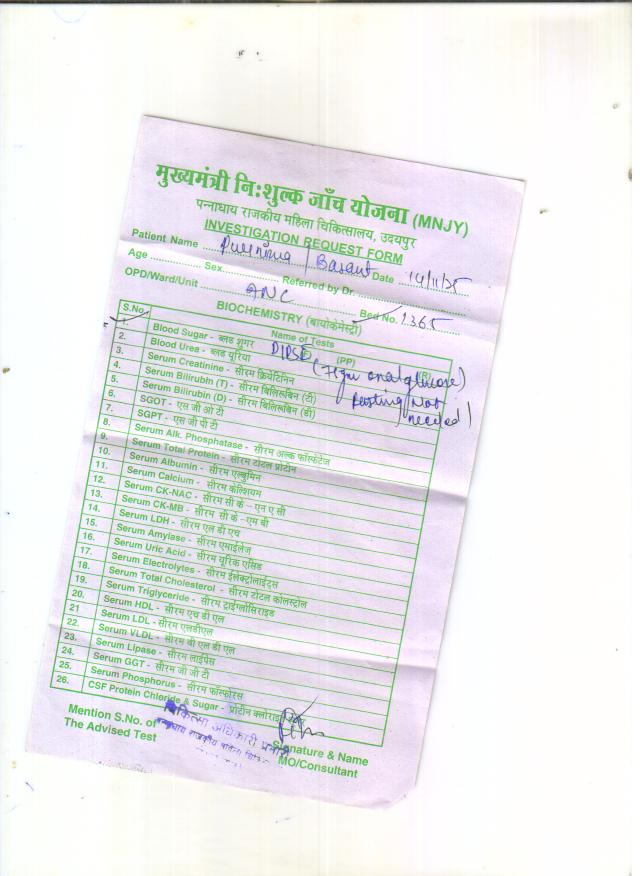 मुख्यमंत्री नि:शुल्क जाँच योजना (MNJY)
पन्नाधाय राजकीय महिला चिकित्सालय, उदयपुर
INVESTIGATION REQUEST FORM
Patient Name Purnima / Basant Date 14/11/25
Age Sex Referred by Dr.
OPD/Ward/Unit ANC Bed No. 1365
BIOCHEMISTRY (बायोकेमेस्ट्री)
S.No. Name of Tests
1. Blood Sugar - ब्लड शुगर (F) (PP) (R)
DIPSI (75gm oral glucose)
fasting Not needed
2. Blood Urea - ब्लड यूरिया
3. Serum Creatinine - सीरम क्रियेटिनिन
4. Serum Bilirubin (T) - सीरम बिलिरूबिन (टी)
5. Serum Bilirubin (D) - सीरम बिलिरूबिन (डी)
6. SGOT - एस जी ओ टी
7. SGPT - एस जी पी टी
8. Serum Alk. Phosphatase - सीरम अल्क फॉस्फटेज
9. Serum Total Protein - सीरम टोटल प्रोटीन
10. Serum Albumin - सीरम एल्बुमिन
11. Serum Calcium - सीरम केल्शियम
12. Serum CK-NAC - सीरम सी के - एन ए सी
13. Serum CK-MB - सीरम सी के - एम बी
14. Serum LDH - सीरम एल डी एच
15. Serum Amylase - सीरम एमाईलेज
16. Serum Uric Acid - सीरम यूरिक एसिड
17. Serum Electrolytes - सीरम ईलेक्ट्रोलाईट्स
18. Serum Total Cholesterol - सीरम टोटल कोलस्ट्रोल
19. Serum Triglyceride - सीरम ट्राईग्लोसिराइड
20. Serum HDL - सीरम एच डी एल
21 Serum LDL - सीरम एलडीएल
22. Serum VLDL - सीरम वी एल डी एल
23. Serum Lipase - सीरम लाईपेस
24. Serum GGT - सीरम जी जी टी
25. Serum Phosphorus - सीरम फॉस्फोरस
26. CSF Protein Chloride & Sugar - प्रोटीन क्लोराइड
चिकित्सा अधिकारी प्रभारी
पन्नाधाय राजकीय महिला
Mention S.No. of Signature & Name
The Advised Test MO/Consultant